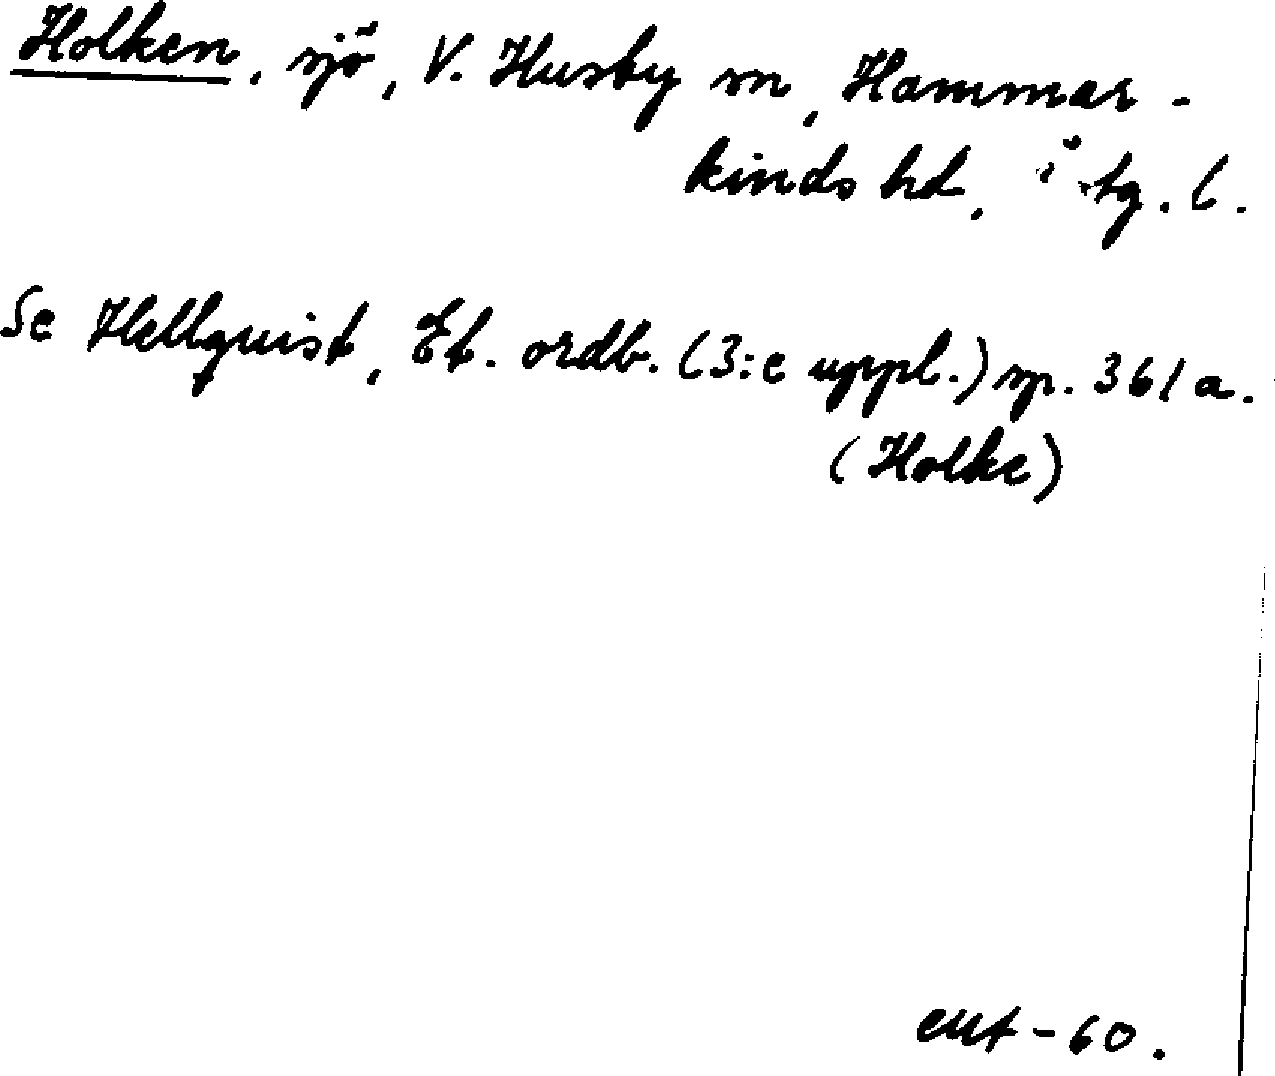 Holken, sjö, V. Husby sn, Hammar-
kinds hd, Ö-tg. l.
Se Hellquist, Et. ordb. (3:e uppl.) sp. 361 a.
(Holke)
-60.